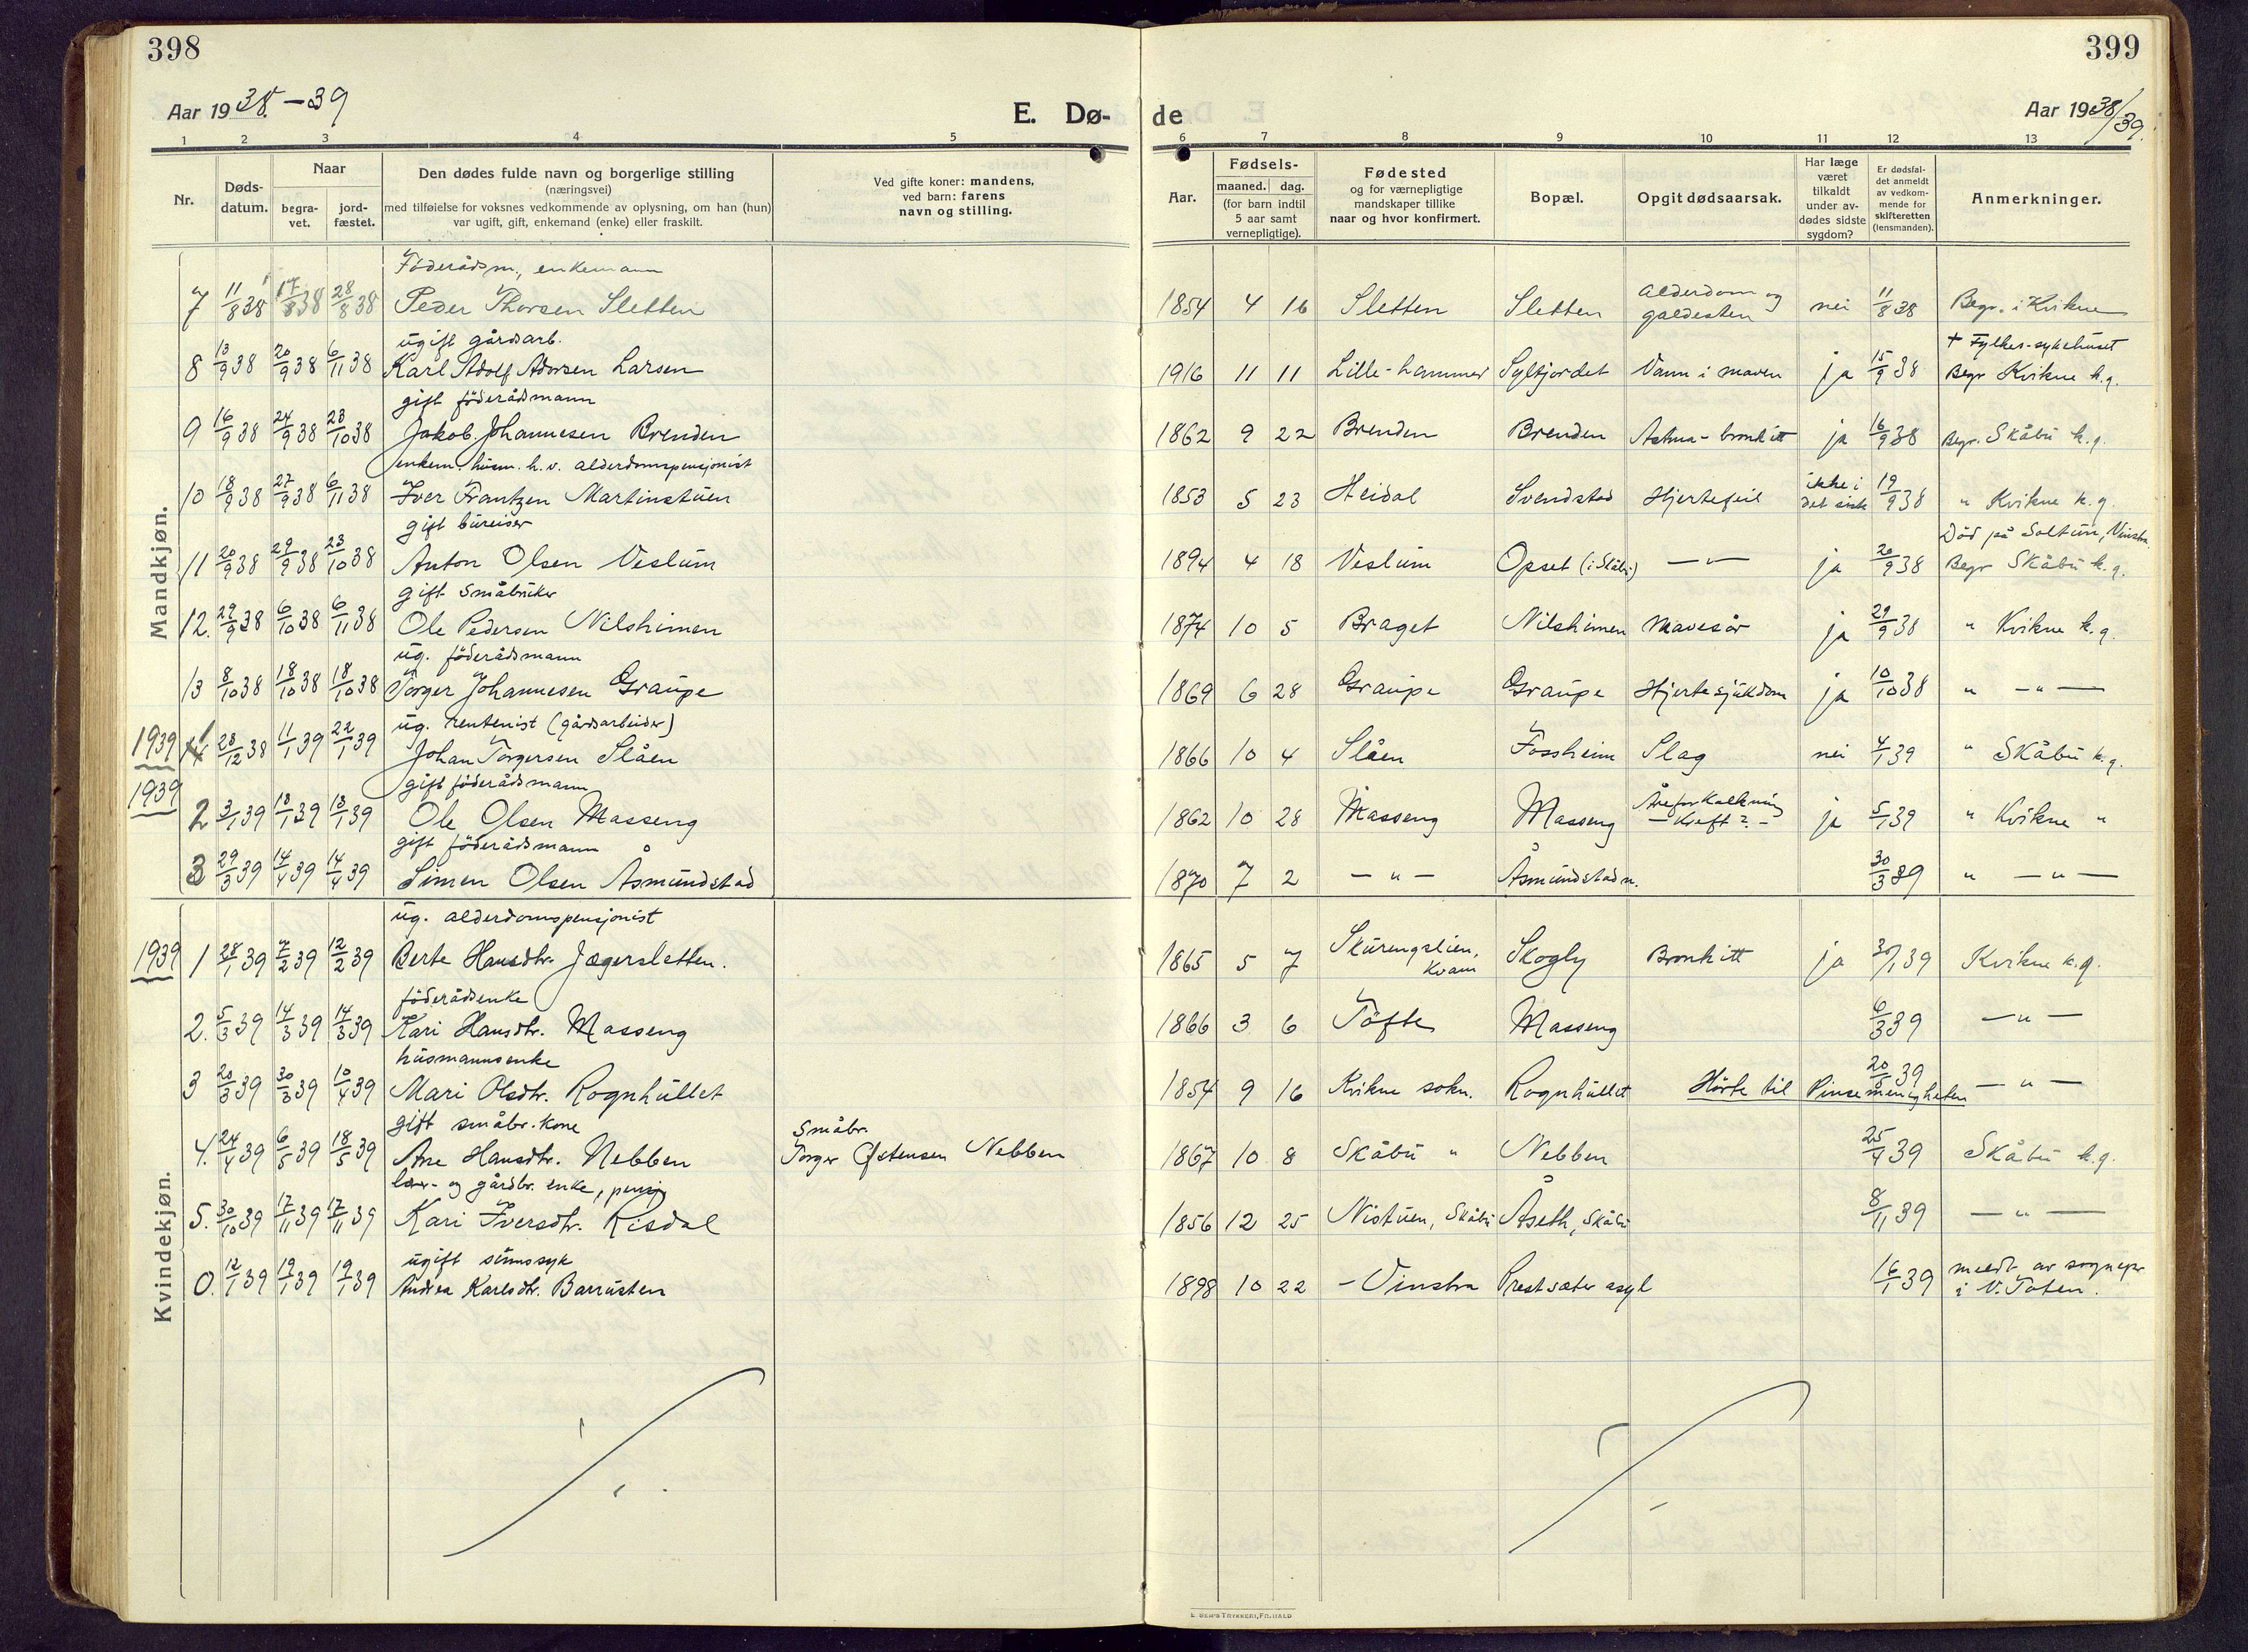 398
399
Aar 1938.-39
E. Dø-
de
Aar 1938/39.
1 2 3 4 5
6 7 8 9 10 11 12 13
Nr.
Døds-
datum.
Naar
begra-
vet.
jord-
fæstet.
Den dødes fulde navn og borgerlige stilling
(næringsvei)
med tilføielse for voksnes vedkommende av oplysning, om han (hun)
var ugift, gift, enkemand (enke) eller fraskilt.
Ved gifte koner: mandens,
ved barn: farens
navn og stilling.
Aar.
Fødsels-
maaned. dag.
(for barn indtil
5 aar samt
vernepligtige).
Fødested
og for værnepligtige
mandskaper tillike
naar og hvor konfirmert.
Bopæl.
Opgit dødsaarsak.
Har læge
været
tilkaldt
under av-
dødes sidste
sygdom?
Er dødsfal-
det anmeldt
av vedkom-
mende for
skifteretten
(lensmanden).
Anmerkninger.
Mandkjøn.
Föderådsm., enkemann
7 11/8 38 17/8 38 28/8 38 Peder Thorsen Sletten 1854 4 16 Sletten Sletten alderdom og galdesten nei 11/8 38 Begr. i Kvikne
ugift gårdsarb. + Fylkes-sykehuset
8 13/9 38 20/9 38 6/11 38 Karl Adolf Adorsen Larsen 1916 11 11 Lille-hammer Syltjordet Vann i maven ja 15/9 38 Begr Kvikne k.g.
gift föderådmann
9 16/9 38 24/9 38 23/10 38 Jakob Johannesen Brenden 1862 9 22 Brenden Brenden Astma-bronkitt ja 16/9 38 Begr. Skåbu k.g.
enkem. husm. h.v. alderdomspensjonist
10 18/9 38 27/9 38 6/11 38 Iver Frantzen Martinstuen 1853 5 23 Heidal Svendstad Hjertefeil ikke i det siste 19/9 38 " Kvikne k.g.
gift bureiser Död på Soltun, Vinstra.
11 20/9 38 29/9 38 23/10 38 Anton Olsen Veslum 1894 4 18 Veslum Opset (i Skåbu) — " — ja 20/9 38 Begr Skåbu k.g.
gift småbruker
12. 29/9 38 6/10 38 6/11 38 Ole Pedersen Nilshimen 1874 10 5 Braget Nilshimen Mavesår ja 29/9 38 " Kvikne k.g.
ug. föderådsmann
13 8/10 38 18/10 38 18/10 38 Torger Johannesen Graupe 1869 6 28 Graupe Graupe Hjertesjukdom ja 10/10 38 " — " —
ug. rentenist (gårdsarbeider)
1939 1 28/12 38 11/1 39 22/1 39 Johan Torgersen Slåen 1866 10 4 Slåen Fossheim Slag nei 4/1 39 " Skåbu k.g.
gift föderådsmann
1939 2 3/1 39 13/1 39 13/1 39 Ole Olsen Masseng 1862 10 28 Masseng Masseng Åreforkalkning — Kreft? — ja 5/1 39 " Kvikne "
gift föderådsmann
3 29/3 39 14/4 39 14/4 39 Simen Olsen Åsmundstad 1870 7 2 — " — Åsmundstad n. 30/3 39 " — " —
Kvindekjøn.
ug. alderdomspensjonist
1939 1 28/1 39 7/2 39 12/2 39 Berte Hansdtr. Jægersletten. 1865 5 7 Skurengslien, Kvam Skogly Bronkitt ja 30/1 39 Kvikne k.g.
föderådsenke
2. 5/3 39 14/3 39 14/3 39 Kari Hansdtr. Masseng 1866 3 6 Töfte Masseng 6/3 39 — " —
husmannsenke
3 20/3 39 30/3 39 10/4 39 Mari Olsdtr. Rognhullet 1854 9 16 Kvikne sokn. Rognhullet Hörte til Pinsemenigheten 20/3 39 — " —
gift småbr. kone Småbr.
4. 24/4 39 6/5 39 18/5 39 Ane Hansdtr. Nebben Torger Østensen Nebben 1867 10 8 Skåbu " Nebben 25/4 39 Skåbu k.g.
lær- og gårdbr. enke, pensj
5. 30/10 39 17/11 39 17/11 39 Kari Iversdtr. Risdal 1856 12 25 Nistuen, Skåbu Åseth, Skåbu 8/11 39 — " —
ugift sinnssyk
0. 12/1 39 19/1 39 19/1 39 Andrea Karlsdtr. Barrusten 1898 10 22 - Vinstra Prestsæter asyl 16/1 39 meldt av sognepr i V. Toten.